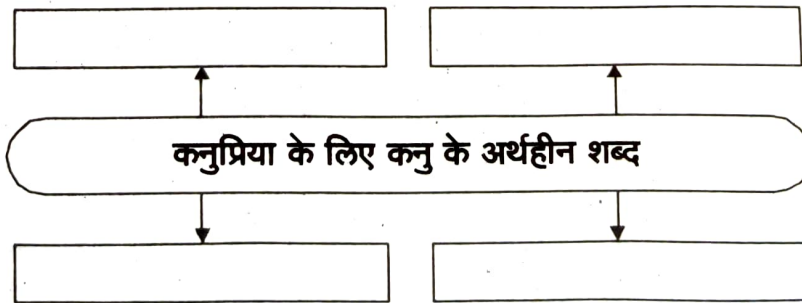 कनुप्रिया के लिए कनु के अर्थहीन शब्द